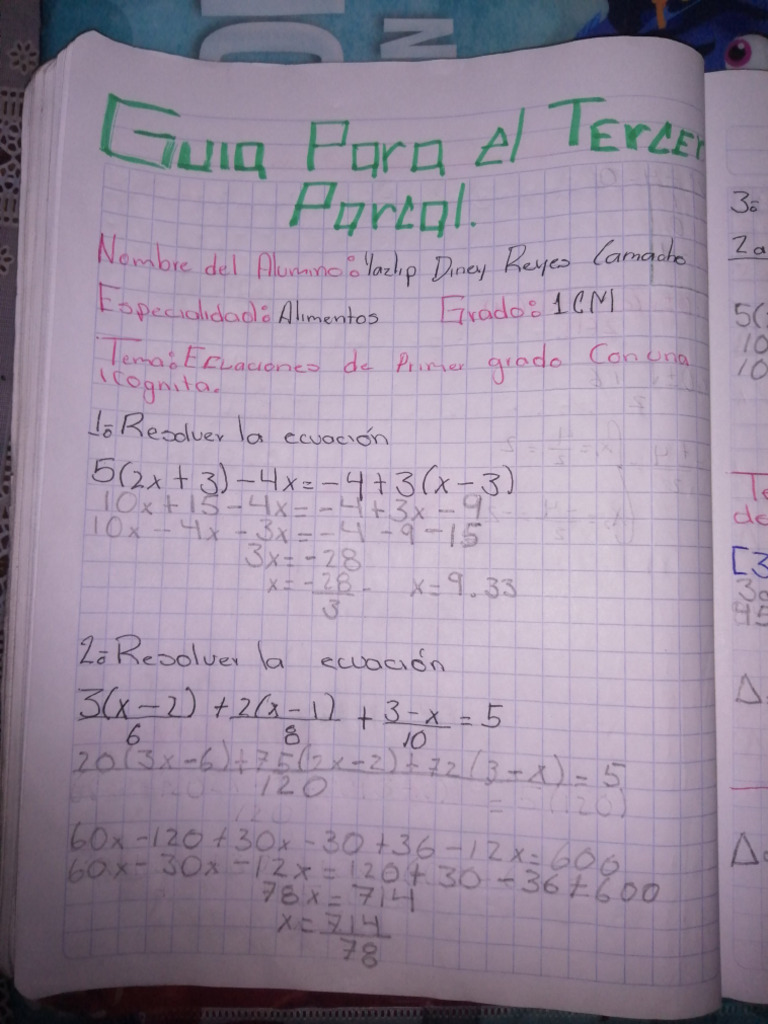 Guia Para el Tercer
Parcial.
Nombre del Alumno: Yazlip Diney Reyes Camacho
Especialidad: Alimentos Grado: 1CM
Tema: Ecuaciones de Primer grado Con una
icognita.
1: Resolver la ecuación
5(2x + 3) - 4x = -4 + 3(x - 3)
10x + 15 - 4x = -4 + 3x - 9
10x - 4x - 3x = -4 - 9 - 15
3x = -28
x = -28/3 x = 9.33
2: Resolver la ecuación
3(x-2)/6 + 2(x-1)/8 + 3-x/10 = 5
20(3x-6) + 15(2x-2) + 12(3-x)/120 = 5
= (120)
60x - 120 + 30x - 30 + 36 - 12x = 600
60x - 30x - 12x = 120 + 30 - 36 + 600
78x = 714
x = 714/78
3:
2a
5(
10
10
Te
de
[3
30
45
Δ
Δ